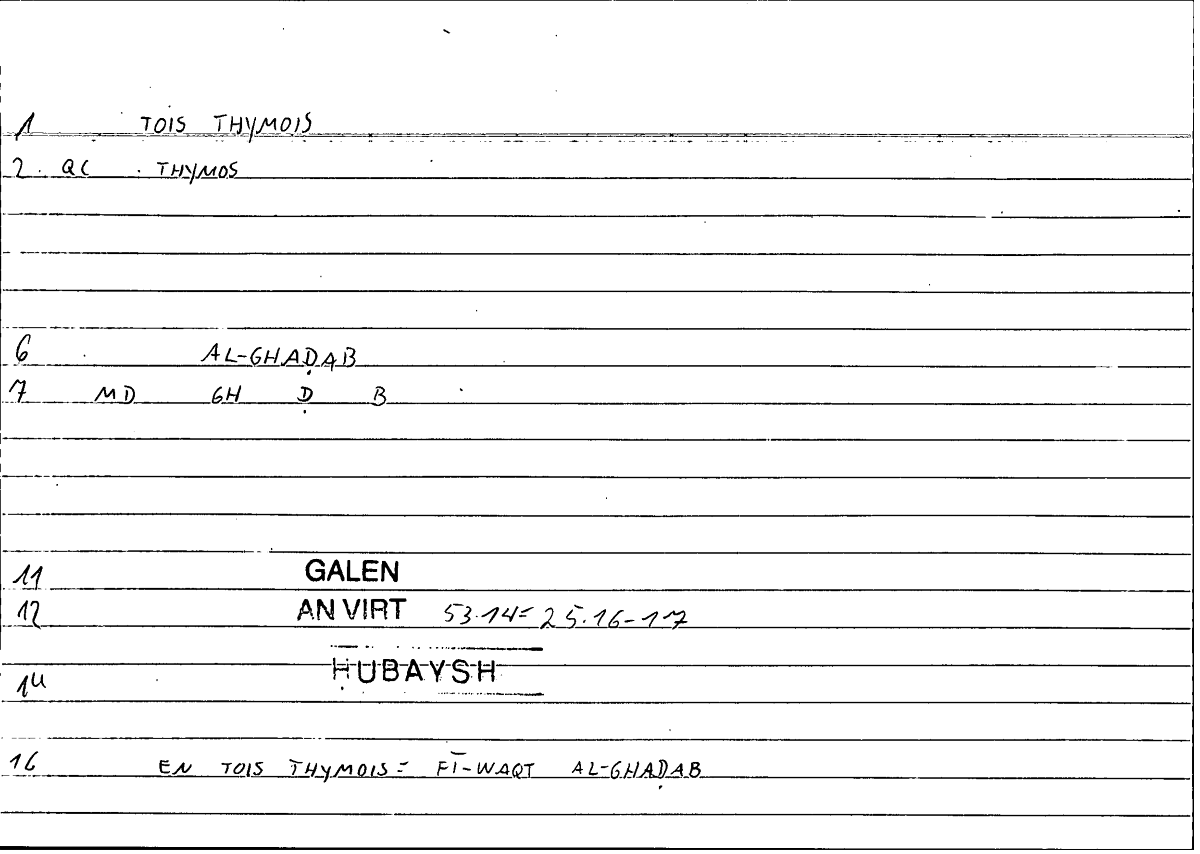 1 TOIS THYMOIS
2. QC THYMOS
6 AL-GHAḌAB
7 MD GH Ḍ B
11 GALEN
12 AN VIRT 53.14=25.16-17
14 ḤUBAYSH
16 EN TOIS THYMOIS= FĪ-WAQT AL-GHAḌAB